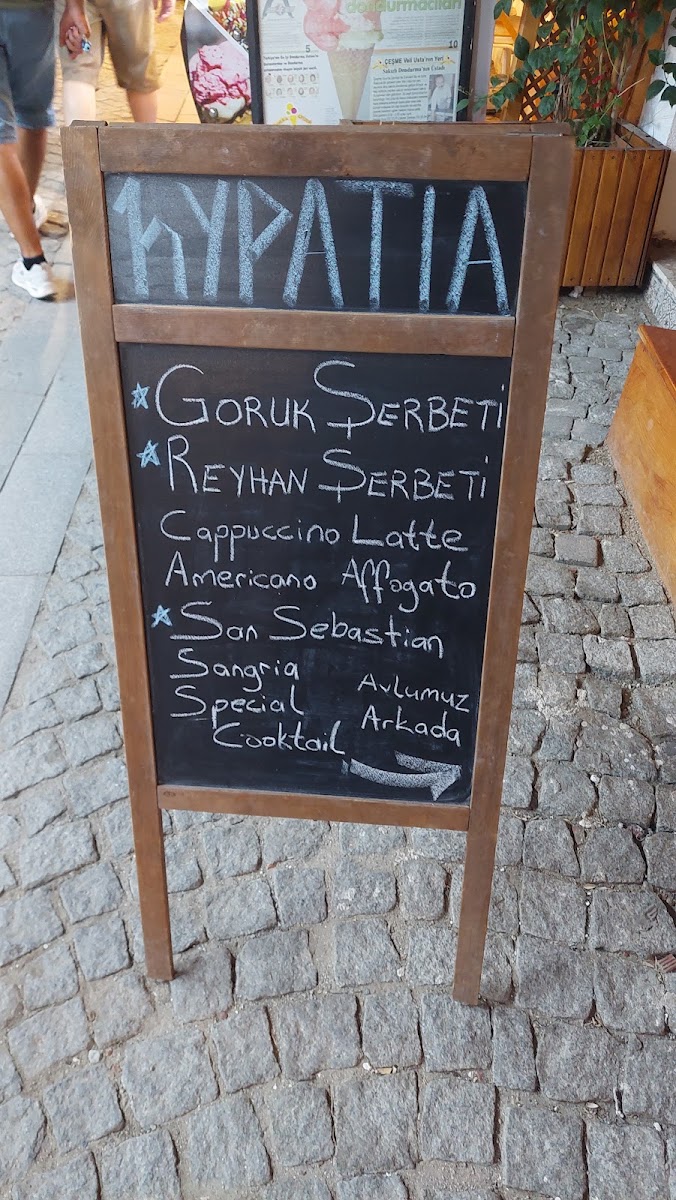 dondurmacıları
5
10
ÇEŞME VERYANSIN
HYPATIA
GORUK ŞERBETİ
REYHAN ŞERBETİ
Cappuccino Latte
Americano Affogato
San Sebastian
Sangria
Special
Cooktail
Avlumuz
Arkada